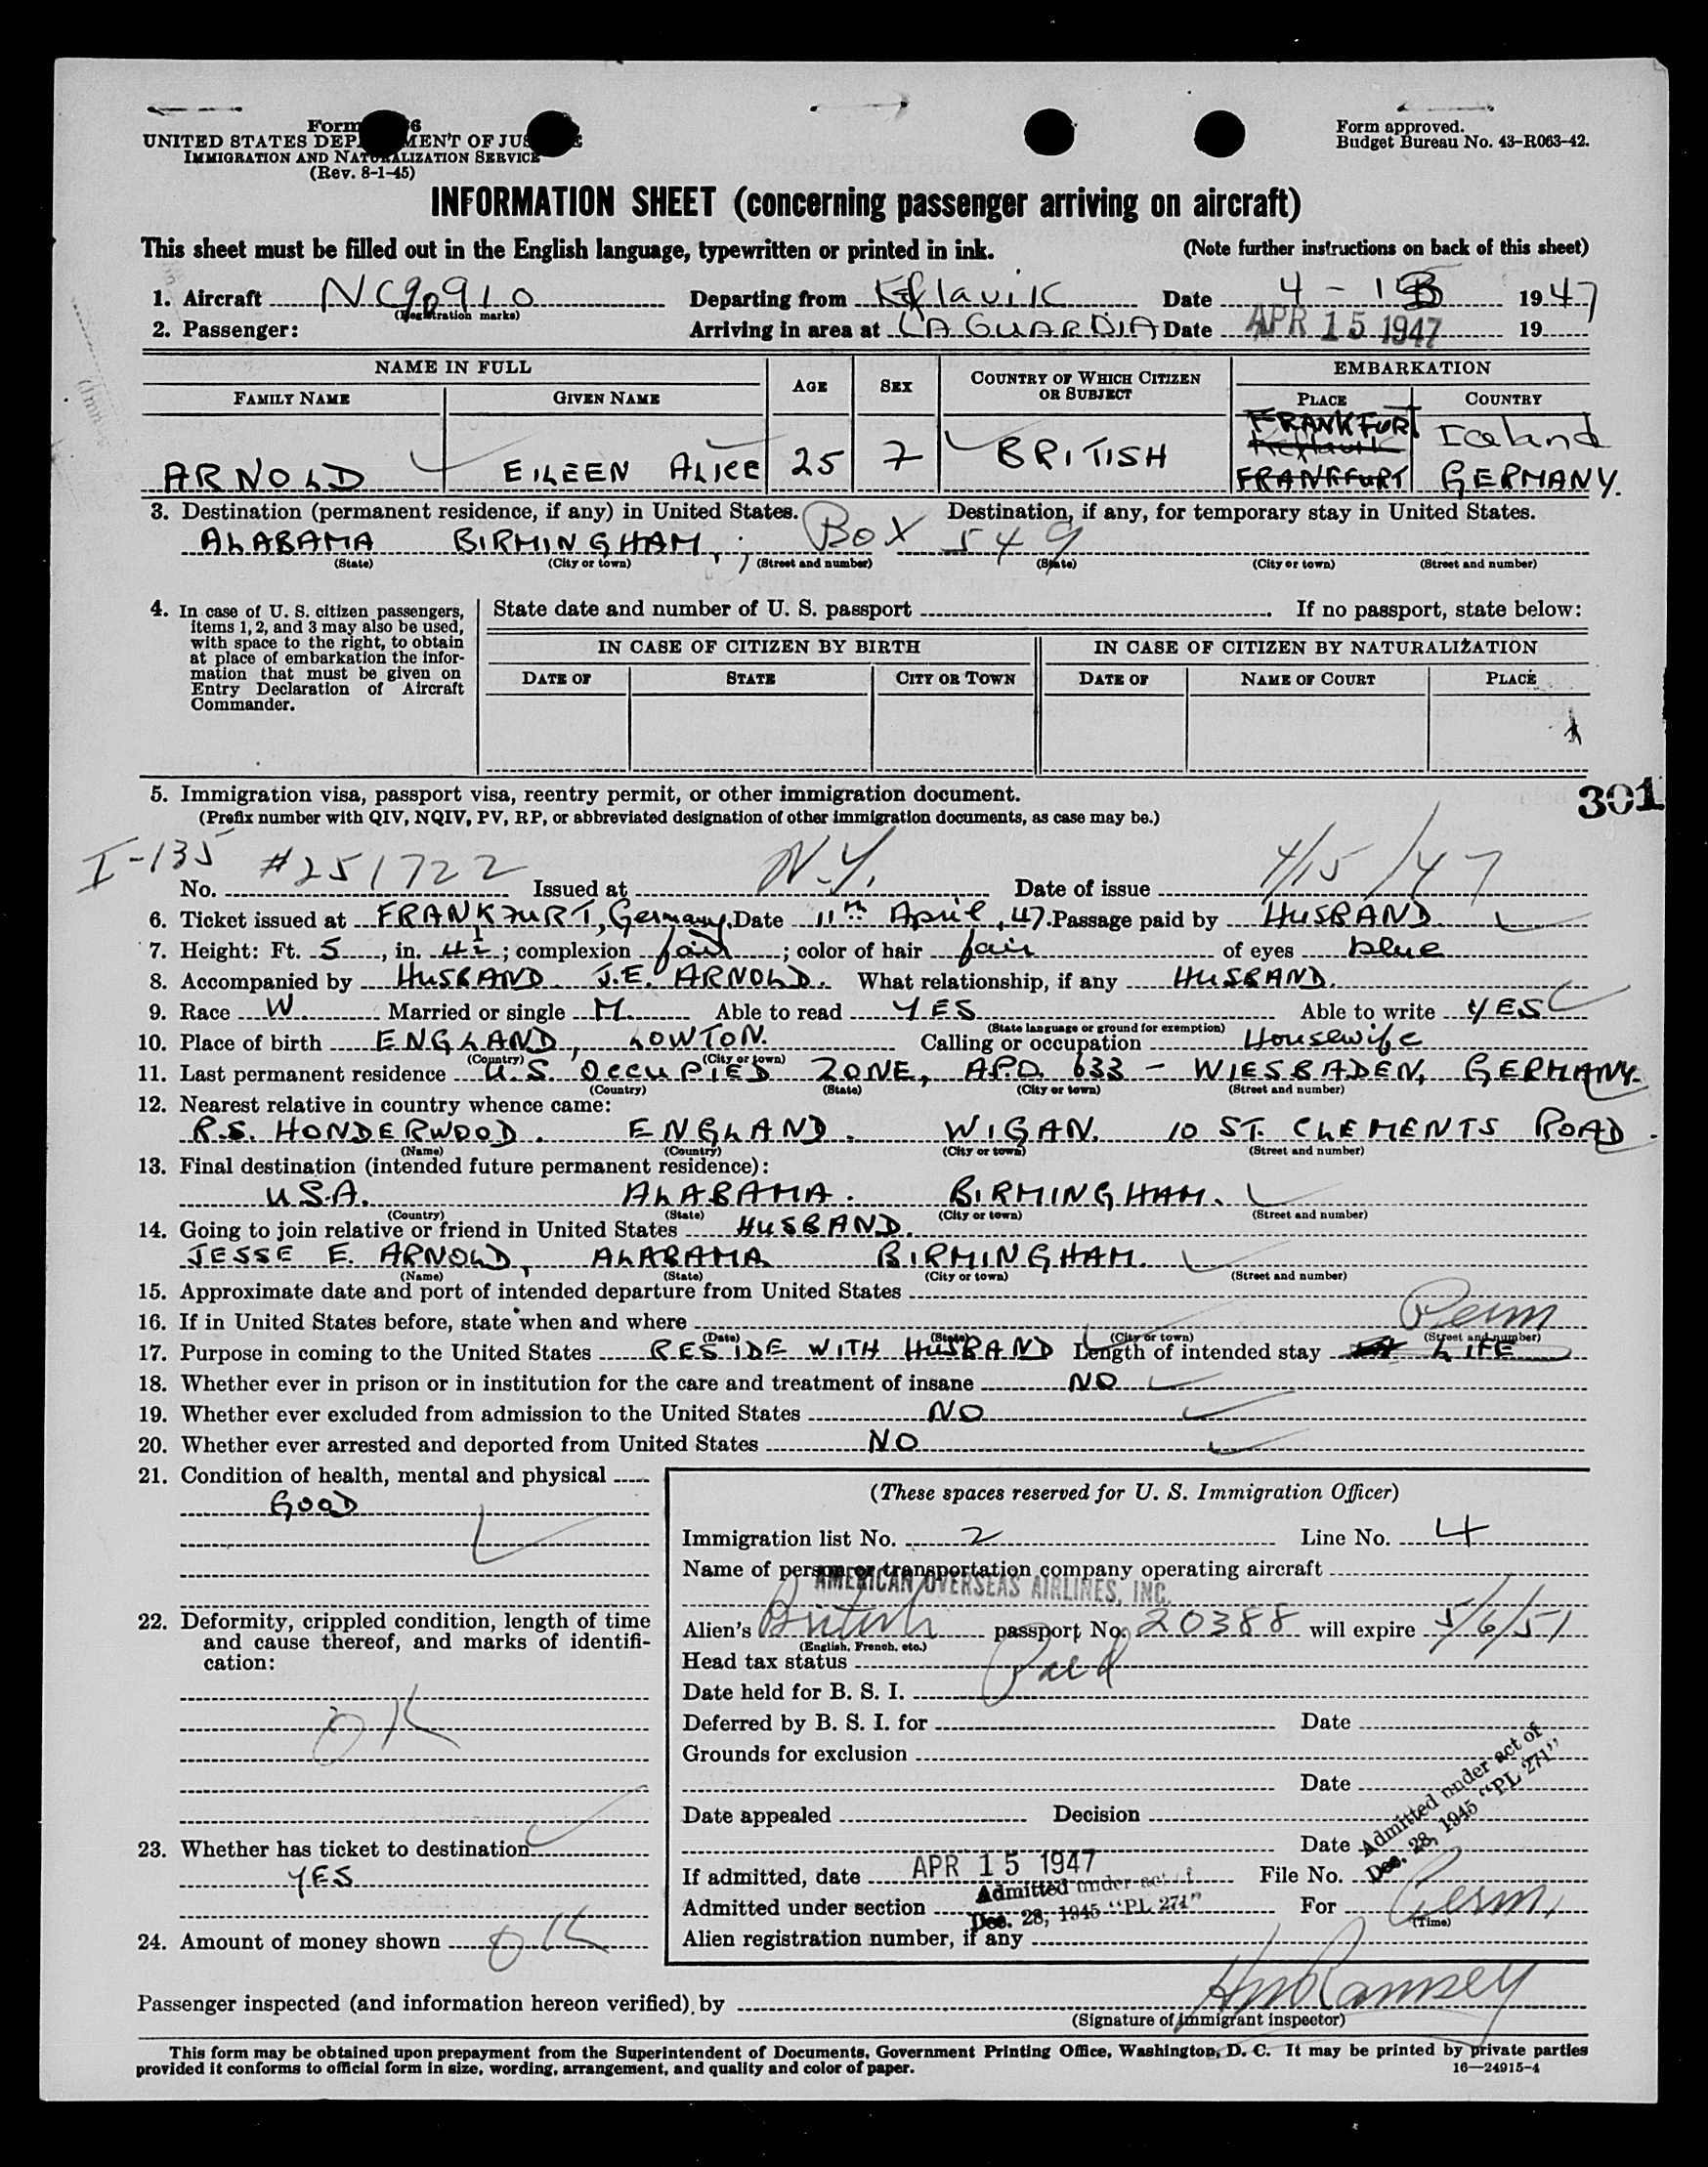 Form 6
UNITED STATES DEP MENT OF JUS
IMMIGRATION AND NATURALIZATION SERVICE
(Rev. 8-1-45)
Form approved.
Budget Bureau No. 43-R063-42.
INFORMATION SHEET (concerning passenger arriving on aircraft)
This sheet must be filled out in the English language, typewritten or printed in ink. (Note further instructions on back of this sheet)
1. Aircraft NC90910 Departing from Keflavik Date 4-15 1947
(Registration marks)
2. Passenger: Arriving in area at LA GUARDIA Date APR 15 1947 19
NAME IN FULL AGE SEX COUNTRY OF WHICH CITIZEN OR SUBJECT EMBARKATION
FAMILY NAME GIVEN NAME PLACE COUNTRY
FRANKFURT Iceland
Keflavik
ARNOLD EILEEN ALICE 25 F BRITISH FRANKFURT GERMANY.
3. Destination (permanent residence, if any) in United States. Destination, if any, for temporary stay in United States.
ALABAMA BIRMINGHAM, ; Box 549
(State) (City or town) (Street and number) (State) (City or town) (Street and number)
4. In case of U. S. citizen passengers, items 1, 2, and 3 may also be used, with space to the right, to obtain at place of embarkation the information that must be given on Entry Declaration of Aircraft Commander.
State date and number of U. S. passport If no passport, state below:
IN CASE OF CITIZEN BY BIRTH IN CASE OF CITIZEN BY NATURALIZATION
DATE OF STATE CITY OR TOWN DATE OF NAME OF COURT PLACE
5. Immigration visa, passport visa, reentry permit, or other immigration document. 301
(Prefix number with QIV, NQIV, PV, RP, or abbreviated designation of other immigration documents, as case may be.)
I-135 No. #251722 Issued at N.Y. Date of issue 4/15/47
6. Ticket issued at FRANKFURT, Germany. Date 11th April, 47. Passage paid by HUSBAND.
7. Height: Ft. 5, in. 4½; complexion fair; color of hair fair of eyes blue
8. Accompanied by HUSBAND J.E. ARNOLD. What relationship, if any HUSBAND.
9. Race W. Married or single M. Able to read YES Able to write YES
(State language or ground for exemption)
10. Place of birth ENGLAND, LOWTON. Calling or occupation Housewife
(Country) (City or town)
11. Last permanent residence U.S. OCCUPIED ZONE, A.P.O. 633 - WIESBADEN, GERMANY.
(Country) (State) (City or town) (Street and number)
12. Nearest relative in country whence came:
R.S. HONDERWOOD. ENGLAND. WIGAN. 10 ST. CLEMENTS ROAD.
(Name) (Country) (City or town) (Street and number)
13. Final destination (intended future permanent residence):
U.S.A. ALABAMA. BIRMINGHAM.
(Country) (State) (City or town) (Street and number)
14. Going to join relative or friend in United States HUSBAND.
JESSE E. ARNOLD, ALABAMA BIRMINGHAM.
(Name) (State) (City or town) (Street and number)
15. Approximate date and port of intended departure from United States
16. If in United States before, state when and where Perm
(Date) (State) (City or town) (Street and number)
17. Purpose in coming to the United States RESIDE WITH HUSBAND Length of intended stay LIFE
18. Whether ever in prison or in institution for the care and treatment of insane NO
19. Whether ever excluded from admission to the United States NO
20. Whether ever arrested and deported from United States NO
21. Condition of health, mental and physical
GOOD
22. Deformity, crippled condition, length of time and cause thereof, and marks of identification:
OK
23. Whether has ticket to destination
YES
24. Amount of money shown OK
(These spaces reserved for U. S. Immigration Officer)
Immigration list No. 2 Line No. 4
Name of person or transportation company operating aircraft
AMERICAN OVERSEAS AIRLINES, INC.
Alien's British passport No. 20388 will expire 5/6/51
(English, French, etc.)
Head tax status Paid
Date held for B. S. I.
Deferred by B. S. I. for Date
Grounds for exclusion
Date
Date appealed Decision
Date
Admitted under act of
Dec. 28, 1945 "PL 271"
If admitted, date APR 15 1947 File No.
Admitted under act of
Admitted under section Dec. 28, 1945 "PL 271" For Perm.
(Time)
Alien registration number, if any
Passenger inspected (and information hereon verified) by HM Ramsey
(Signature of immigrant inspector)
This form may be obtained upon prepayment from the Superintendent of Documents, Government Printing Office, Washington, D. C. It may be printed by private parties
provided it conforms to official form in size, wording, arrangement, and quality and color of paper. 16—24915-4